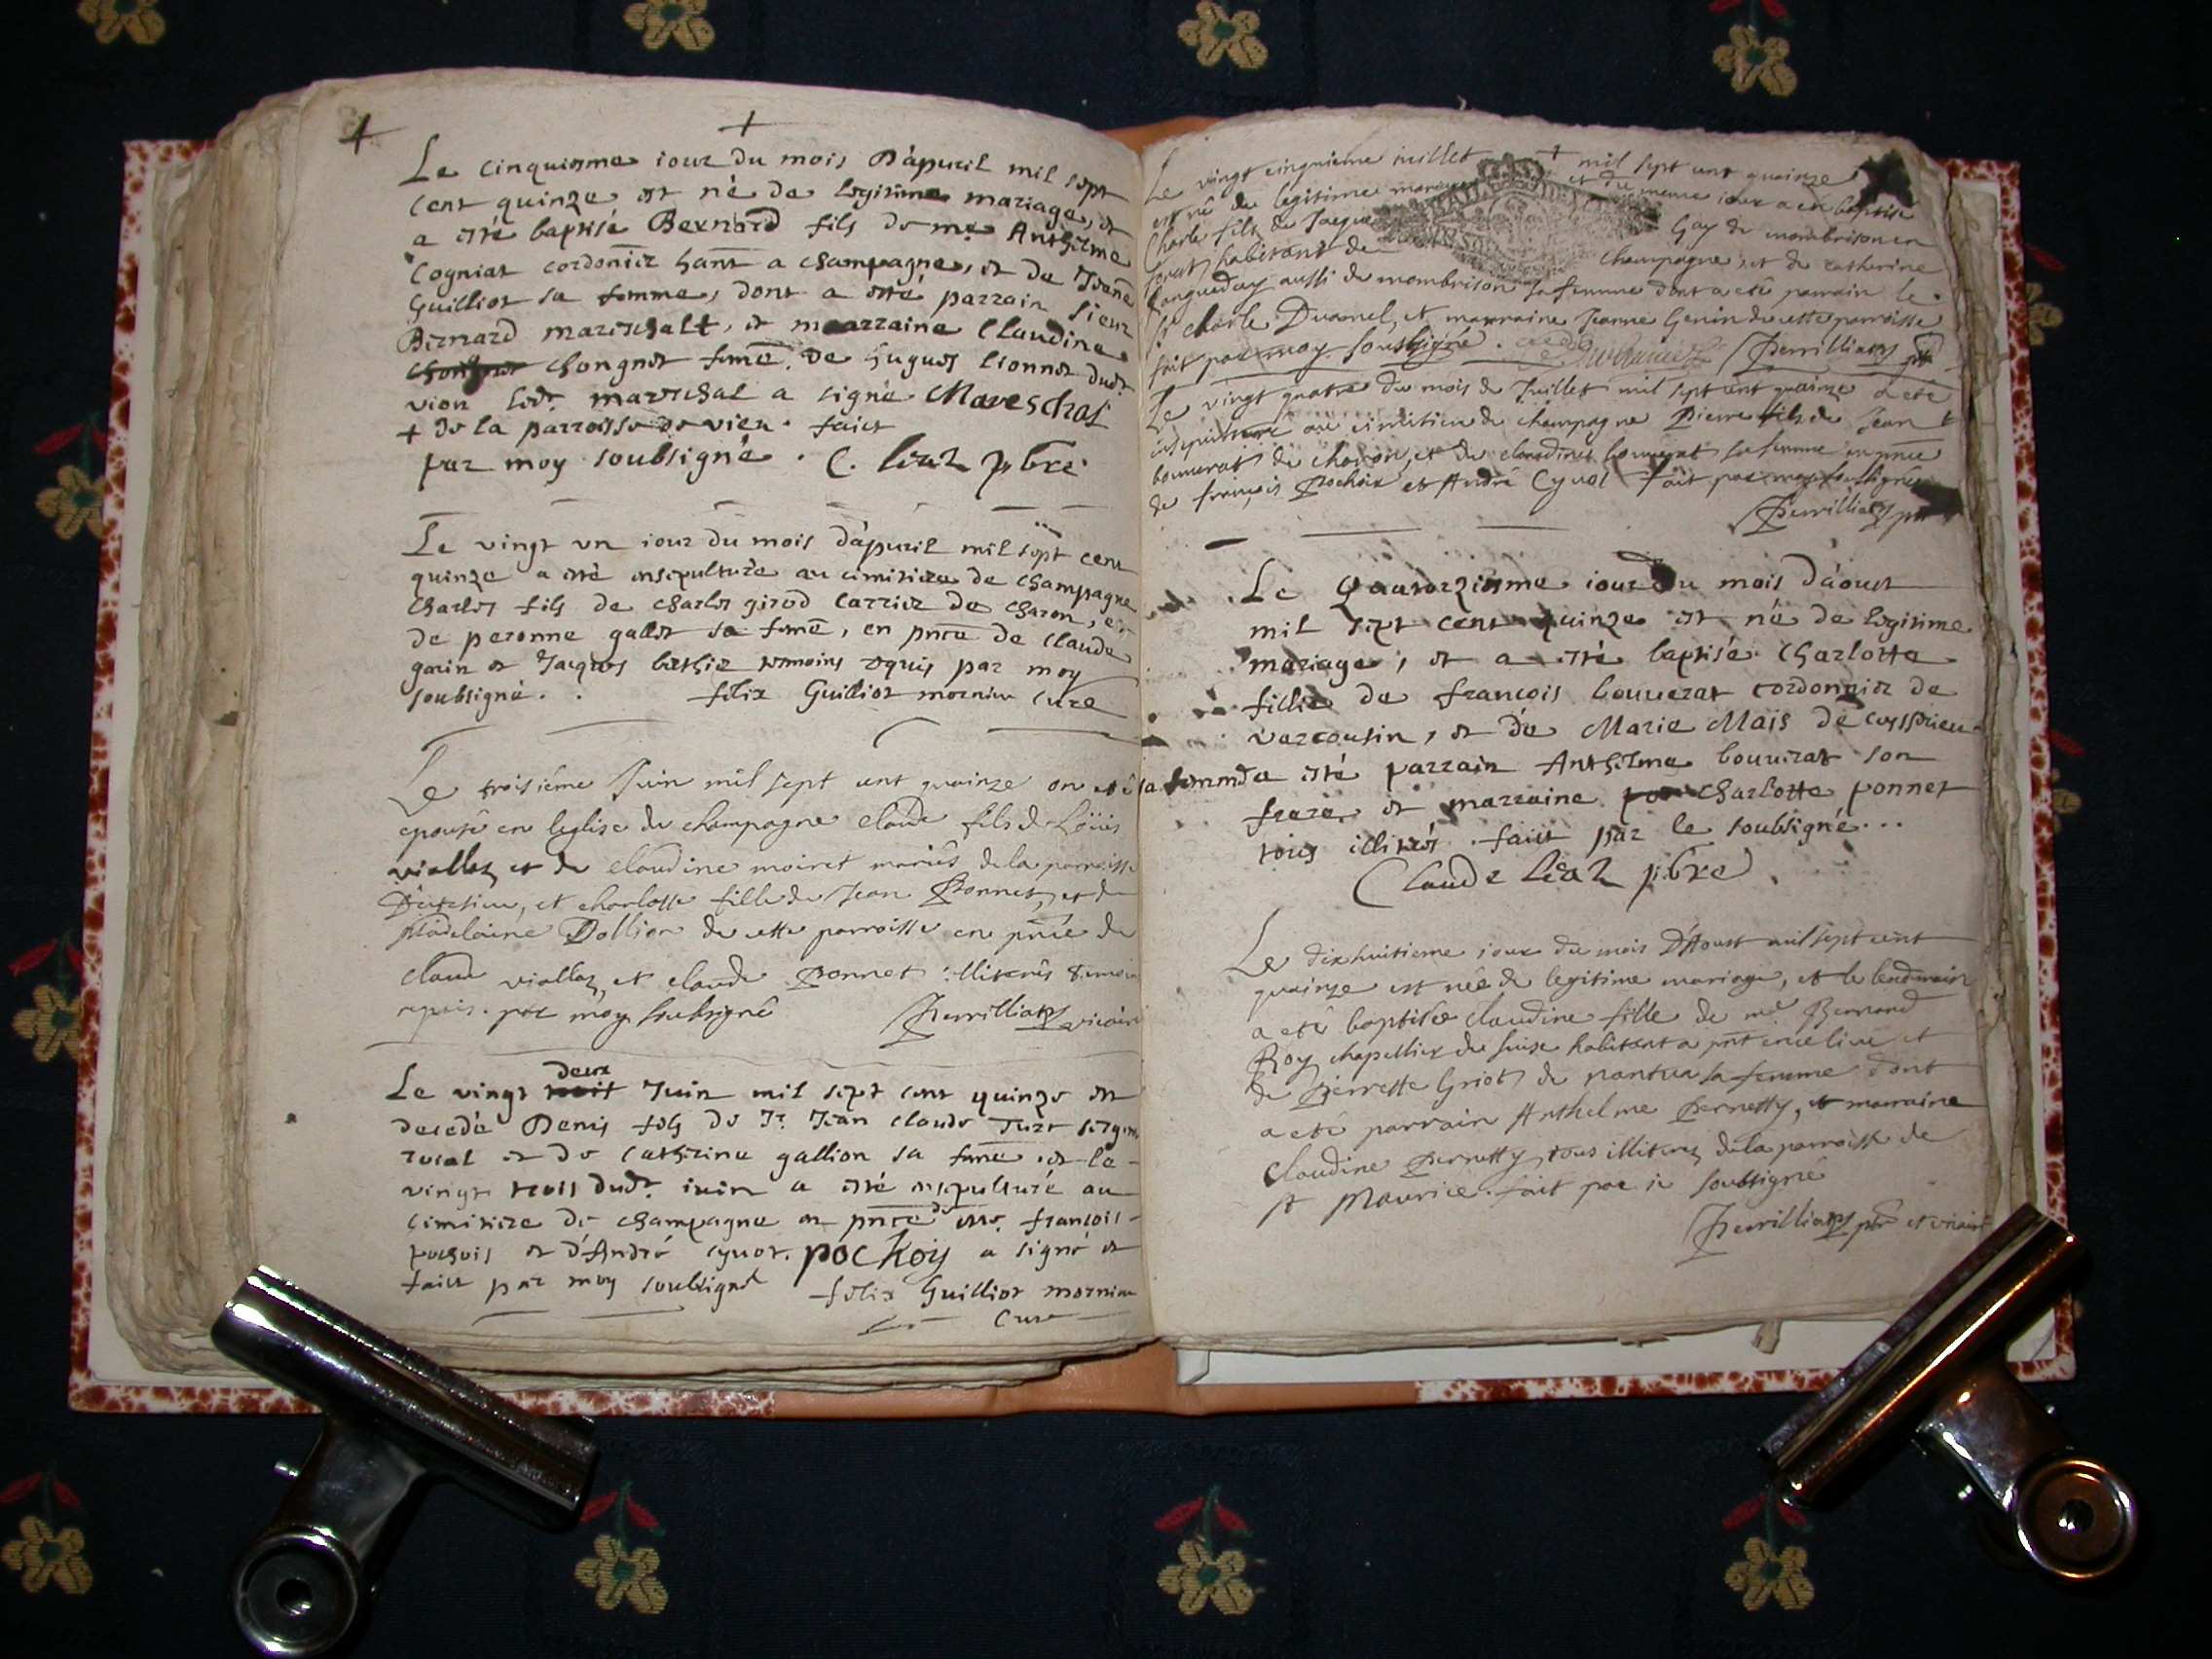 Le cinquiesme iour du mois d'apuril mil sept
cent quinze est né de legitime mariage, et
a esté baptisé Bernard fils de me Anthelme
Cogniat cordonier hant a champagne, et de
Guilliot sa femme, dont a esté parrain sieur
Bernard mareschalt, et marraine Claudine
chongnet feme de hugues lionnet dudt
vion ledt mareschal a signé Mareschal
+ de la parroisse de vieu. faict
par moy soubsigné. C. pbre
Le vingt vn iour du mois d'apuril mil sept cent
quinze a esté ensepulturée au cimitiere de champagne
charles fils de charles girod carrier de charon, et
de peronne gallet sa feme, en pnce de claude
garin et Jacques berthier temoins requis par moy
soubsigné. felix Guilliot mornieu cure
Le troisiéme Juin mil sept cent quinze on eté
epousé en leglise de champagne claude fils de Loüis
viallet, et de claudine moiret mariés de la parroisse
et charlotte fille de Jean Ponnet, et de
Madelaine Dollion de cette parroisse en pnce de
claude viallet, et claude Ponnet illiterés temoins
requis. par moy soubsigné Perrilliat vicaire
deux
Le vingt huit Juin mil sept cent quinze est
decedé Denis fils de Sr Jean claude
roial et de catherine gallion sa feme et le
vingt trois dudt iuin a esté ensepulturé au
cimitiere de champagne en pnce de me francois
pochois et d'André cyuot. pochoy a signé et
faict par moy soubsigné felix Guilliot mornieu
Cure
Le vingt cinquieme iuillet + mil sept cent quinze
est né de legitime mariage et du meme iour a eté baptisé
Charle fils de Jaque Gay de mombrison en
forest habitant de champagne, et de catherine
aussi de mombrison sa femme dont a eté parrain le
sr charle Duamel, et marraine Jeanne Genin de cette parroisse
fait par moy soussigné. Perrilliat
Le vingt quatre du mois de Juillet mil sept cent quinze a eté
ensepulturé au cimitiere de champagne Pierre fils de Jean
bouuerat de charon, et de claudine bouuerat sa femme en pnce
de françois Pochoix et André Cyuot fait par moy soussigné
Perrilliat
Le Quatorziesme iour du mois d'aoust
mil sept cent quinze est né de legitime
mariage, et a esté baptisé charlotte
fillie de francois bouuerat cordonnier de
varcousin, et de Marie Maïs de
sa femme a esté parrain Anthelme bouuerat son
frere et marraine charlotte ponnet
tous illiterés. faict par le soubsigné...
Claude pbre
Le dixhuitieme iour du mois D'Aoust mil sept cent
quinze est née de legitime mariage, et le lendemain
a eté baptisée claudine fille de me Bernard
Roy chapellier de habitant a pnt et
de Pierrette Griot de nantua sa femme dont
a eté parrain Anthelme Pernetty, et marraine
claudine Pernetty tous illiterez de la parroisse de
st Maurice. fait par ie soubsigné
Perrilliat pbr et vicaire